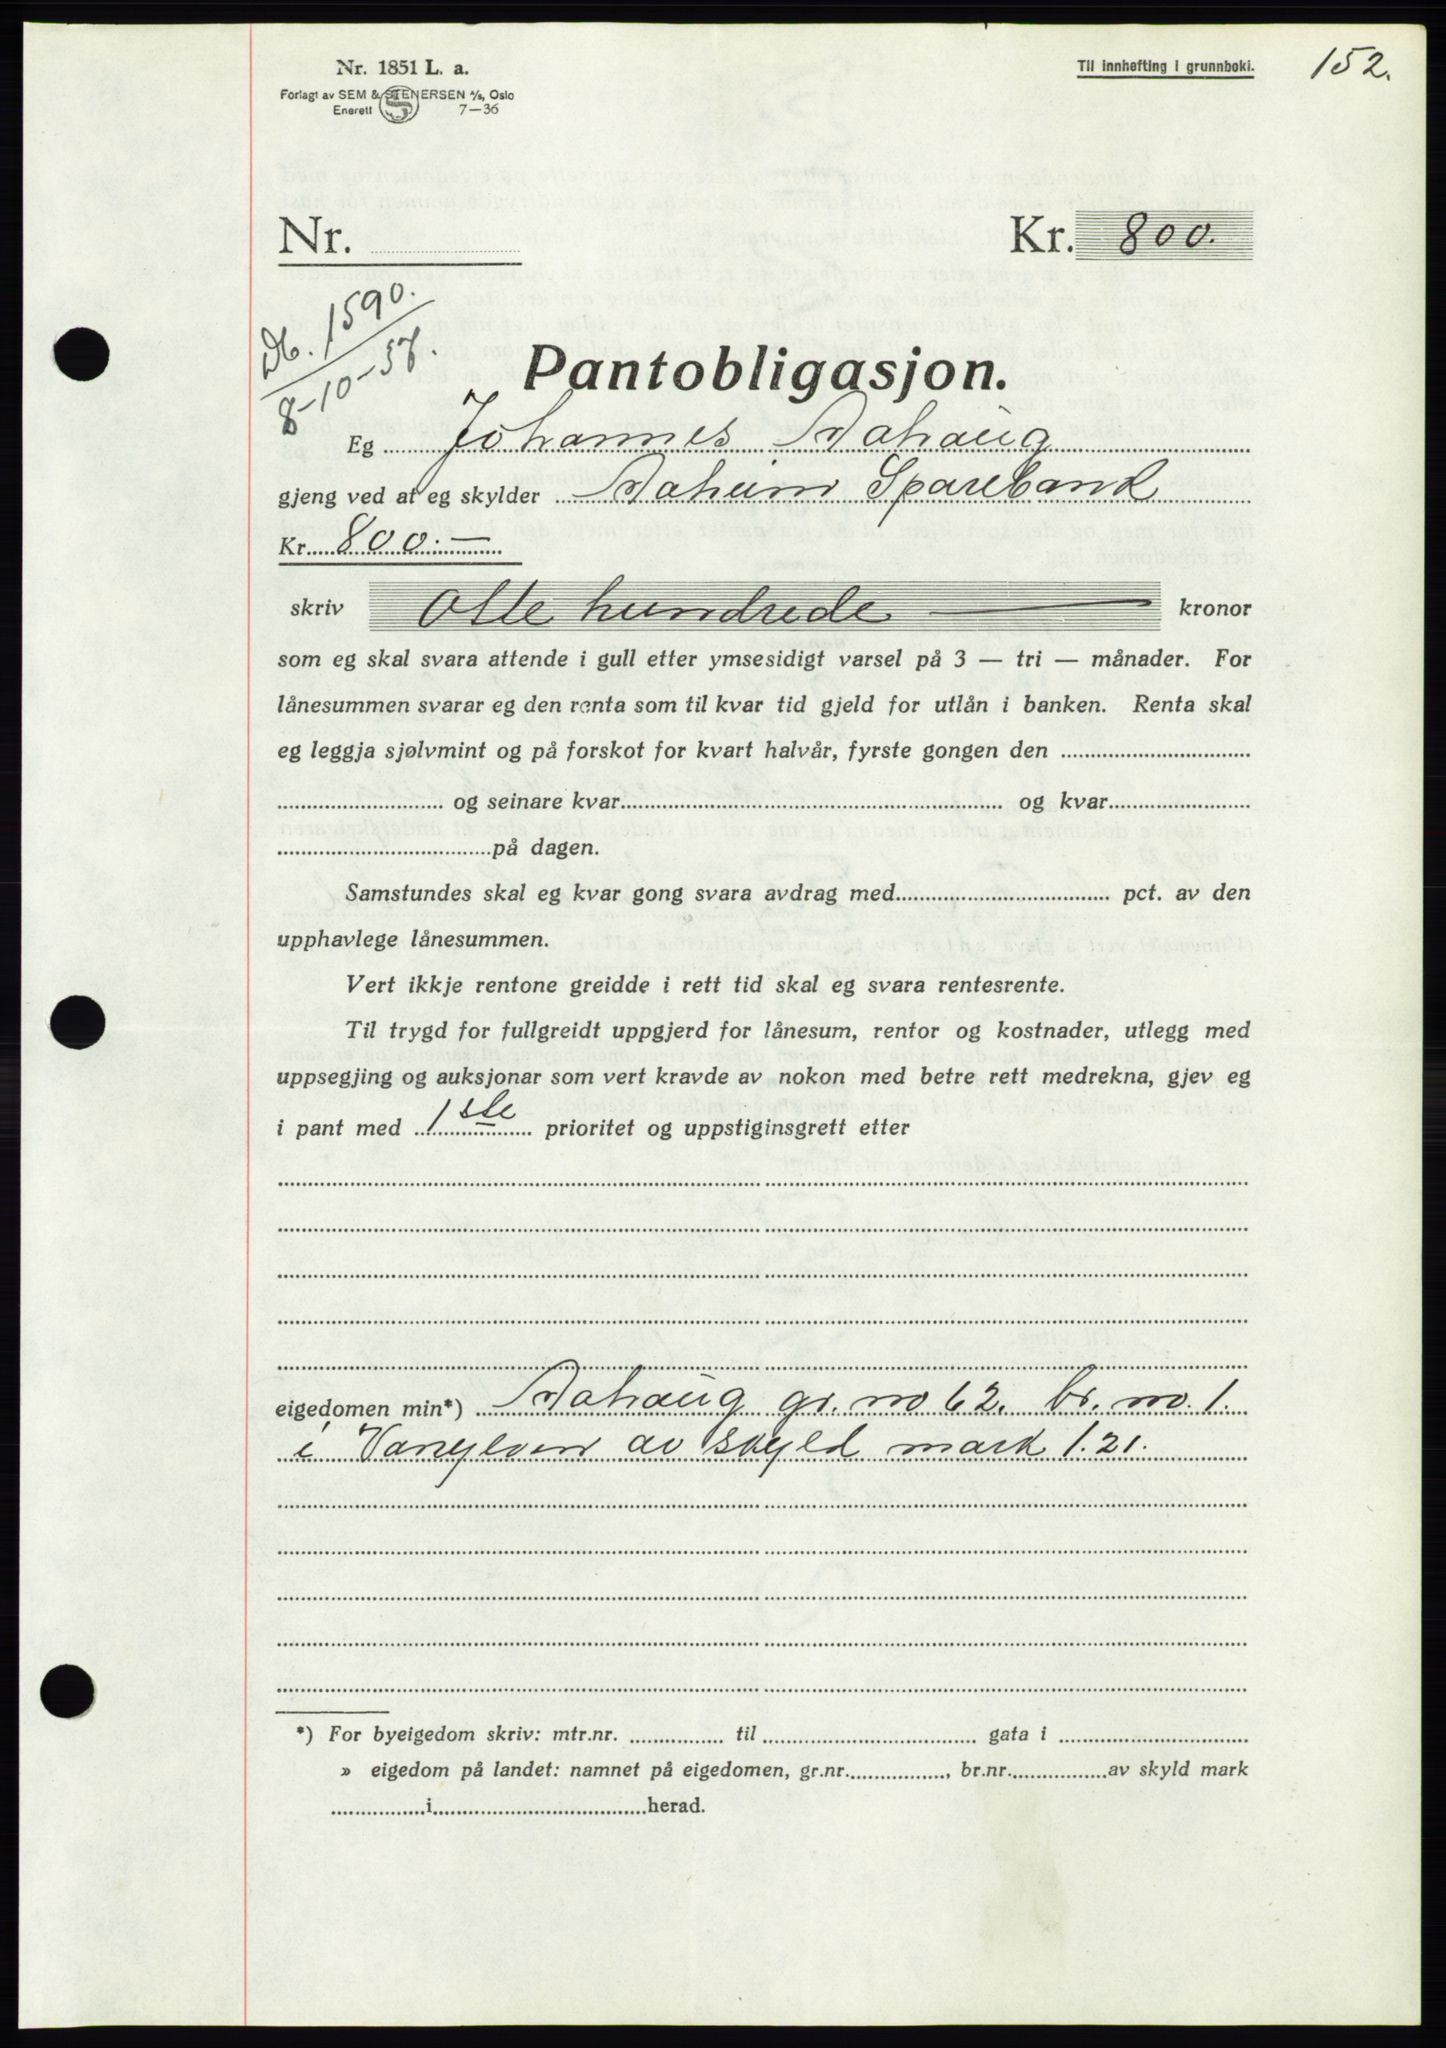 Nr. 1851 L. a.
Forlagt av SEM & STENERSEN A/S, Oslo
Enerett 7—36
Til innhefting i grunnboki.
152.
Nr.
Kr. 800.
Db. 1590.
8-10-37.
Pantobligasjon.
Eg Johannes Aahaug
gjeng ved at eg skylder Aaheim Sparebank
Kr. 800.—
skriv Otte hundrede — kronor
som eg skal svara attende i gull etter ymsesidigt varsel på 3 — tri — månader. For
lånesummen svarar eg den renta som til kvar tid gjeld for utlån i banken. Renta skal
eg leggja sjølvmint og på forskot for kvart halvår, fyrste gongen den
og seinare kvar og kvar
på dagen.
Samstundes skal eg kvar gong svara avdrag med pct. av den
upphavlege lånesummen.
Vert ikkje rentone greidde i rett tid skal eg svara rentesrente.
Til trygd for fullgreidt uppgjerd for lånesum, rentor og kostnader, utlegg med
uppsegjing og auksjonar som vert kravde av nokon med betre rett medrekna, gjev eg
i pant med 1ste prioritet og uppstiginsgrett etter
eigedomen min*) Aahaug gr. no 62. br. no. 1.
i Vanylven av skyld mark 1.21.
*) For byeigedom skriv: mtr.nr. til gata i
» eigedom på landet: namnet på eigedomen, gr.nr. , br.nr. av skyld mark
i herad.